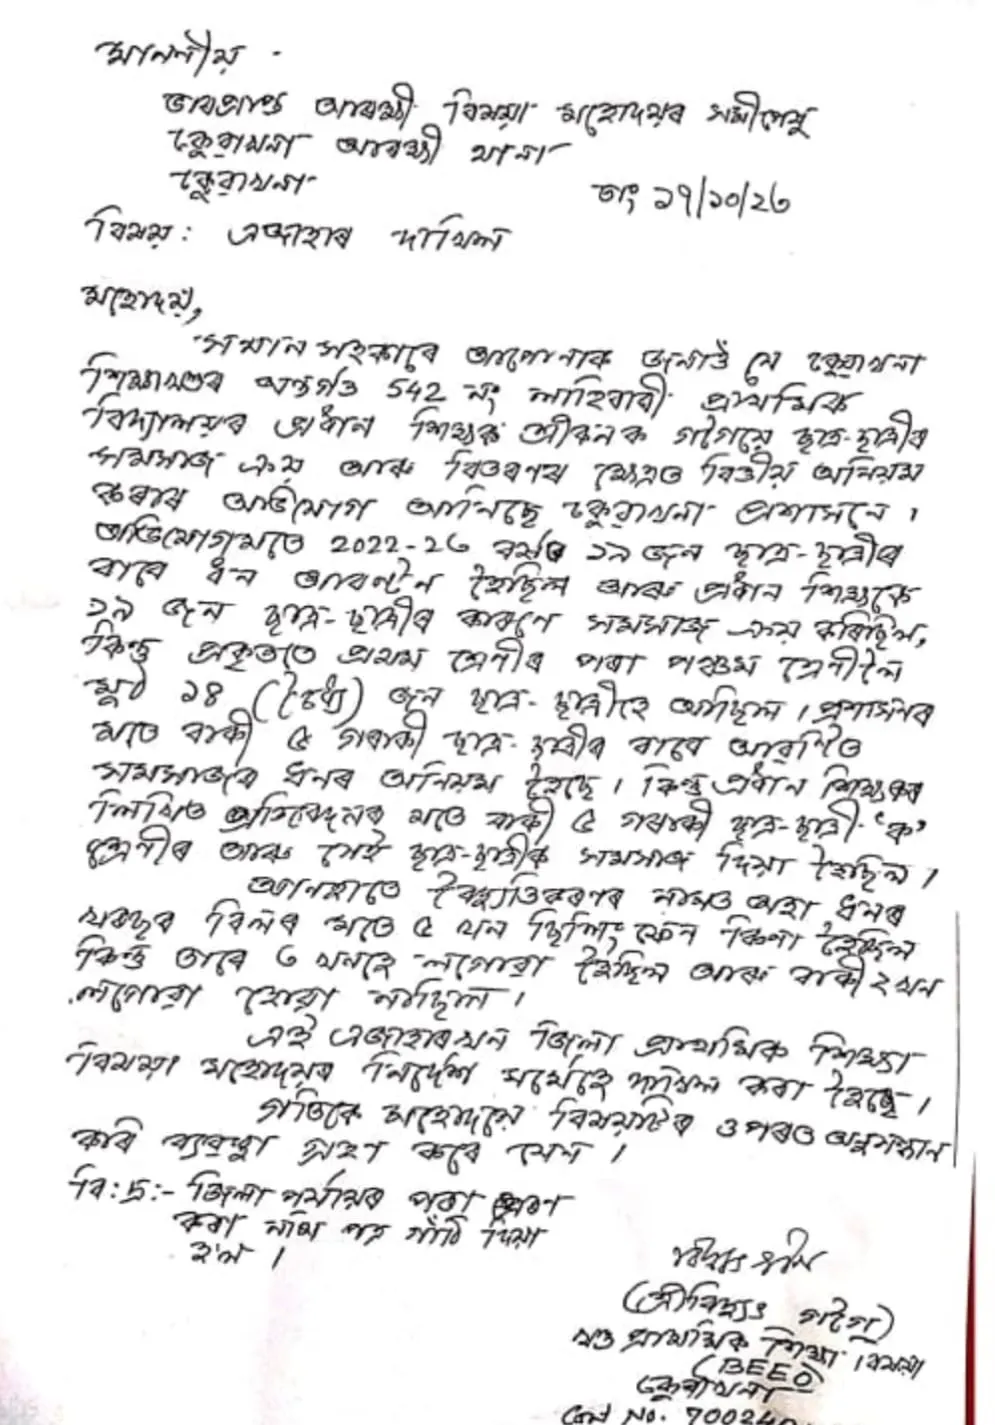 মাননীয়
ভাৰপ্ৰাপ্ত আৰক্ষী বিষয়া মহোদয়ৰ সমীপেষু
আৰক্ষী থানা
তাং ১৭/১০/২৩
বিষয় : এজাহাৰ দাখিল
মহোদয়,
সন্মান সহকাৰে আপোনাক জনাওঁ যে
শিক্ষাখণ্ডৰ অন্তৰ্গত 542 নং লাহিবাৰী প্ৰাথমিক
বিদ্যালয়ৰ প্ৰধান শিক্ষক শ্ৰী গগৈয়ে ছাত্ৰ-ছাত্ৰীৰ
সমসাজ ক্ৰয় আৰু বিতৰণৰ ক্ষেত্ৰত বিত্তীয় অনিয়ম
কৰাৰ অভিযোগ আনিছে প্ৰশাসনে ।
অভিযোগমতে 2022-23 বৰ্ষত ১৯ জন ছাত্ৰ-ছাত্ৰীৰ
বাবে ধন আবণ্টন হৈছিল আৰু প্ৰধান শিক্ষকে
১৯ জন ছাত্ৰ-ছাত্ৰীৰ কাৰণে সমসাজ ক্ৰয় কৰিছিল,
কিন্তু প্ৰকৃততে প্ৰথম শ্ৰেণীৰ পৰা পঞ্চম শ্ৰেণীলৈ
মুঠ ১৪ (চৈধ্য) জন ছাত্ৰ-ছাত্ৰীহে আছিল । প্ৰশাসনৰ
মতে বাকী ৫ গৰাকী ছাত্ৰ-ছাত্ৰীৰ বাবে আৱণ্টিত
সমসাজৰ ধনৰ অনিয়ম হৈছে । কিন্তু প্ৰধান শিক্ষকৰ
লিখিত প্ৰতিবেদনৰ মতে বাকী ৫ গৰাকী ছাত্ৰ-ছাত্ৰী 'ক'
শ্ৰেণীৰ আৰু সেই ছাত্ৰ-ছাত্ৰীক সমসাজ দিয়া হৈছিল ।
আনহাতে বৈদ্যুতিকৰণৰ নামত অহা ধনৰ
খৰছৰ বিলৰ মতে ৫ খন ছিলিং ফেন কিনা হৈছিল
কিন্তু তাৰে ৩ খনহে লগোৱা হৈছিল আৰু বাকী ২ খন
লগোৱা হোৱা নাছিল ।
এই এজাহাৰখন জিলা প্ৰাথমিক শিক্ষা
বিষয়া মহোদয়ৰ নিৰ্দেশ মৰ্মেহে দাখিল কৰা হৈছে ।
গতিকে মহোদয়ে বিষয়টিৰ ওপৰত অনুসন্ধান
কৰি ব্যৱস্থা গ্ৰহণ কৰে যেন ।
বি:দ্ৰ:- জিলা পৰ্যায়ৰ পৰা প্ৰেৰণ
কৰা পত্ৰ গাঁথি দিয়া
হ'ল ।
(শ্ৰীবিদ্যুৎ গগৈ)
খণ্ড প্ৰাথমিক শিক্ষা বিষয়া
(BEEO)
No. 70024